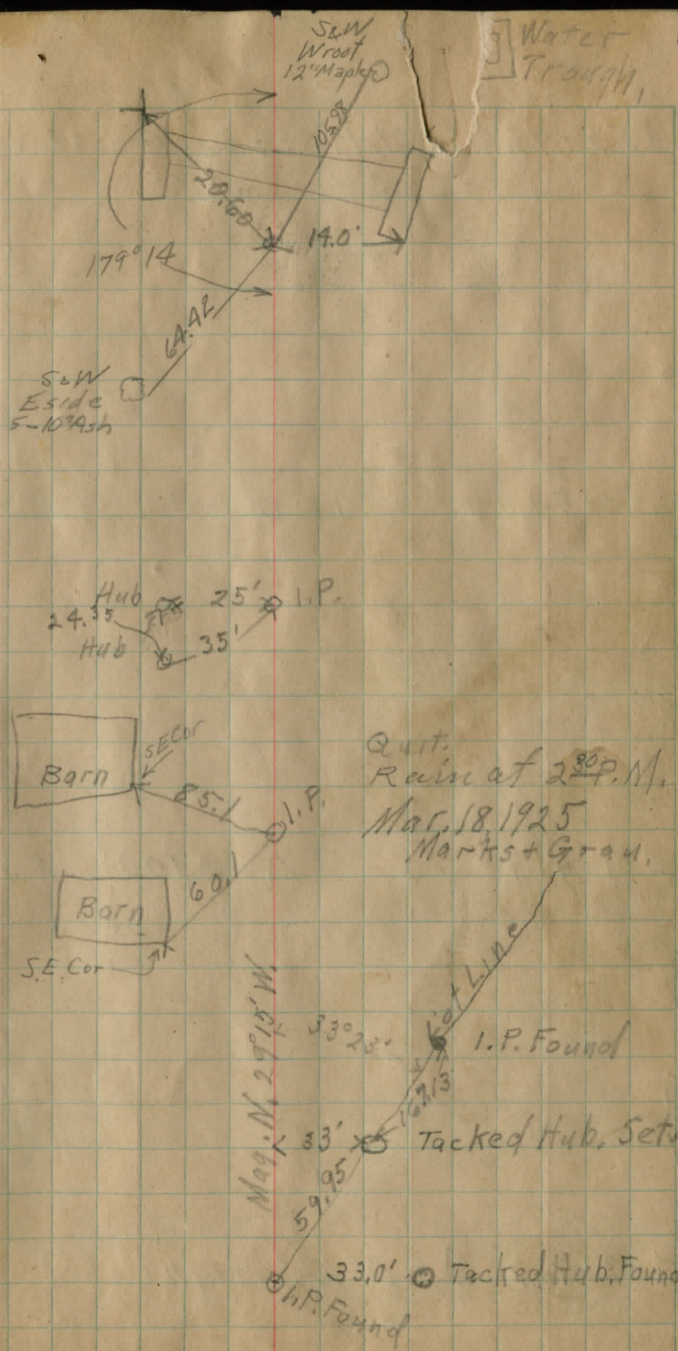 S&W
W root
12" Maple
Water
Trough,
105.98
20.60
14.0'
179° 14
64.42
S&W
E side
5-10" Ash
Hub
25'
I.P.
24.35
Hub
35'
S.E Cor
Barn
85.1
I.P.
Quit.
Rain at 2 30 P.M.
Mar. 18, 1925
Marks + Gray.
60.1
Barn
S.E. Cor
Mag. N. 29° 15' W.
Lot Line
I.P. Found
167.13
33'
Tacked Hub, Set
59.95
33.0'
Tacked Hub, Found
I.P. Found